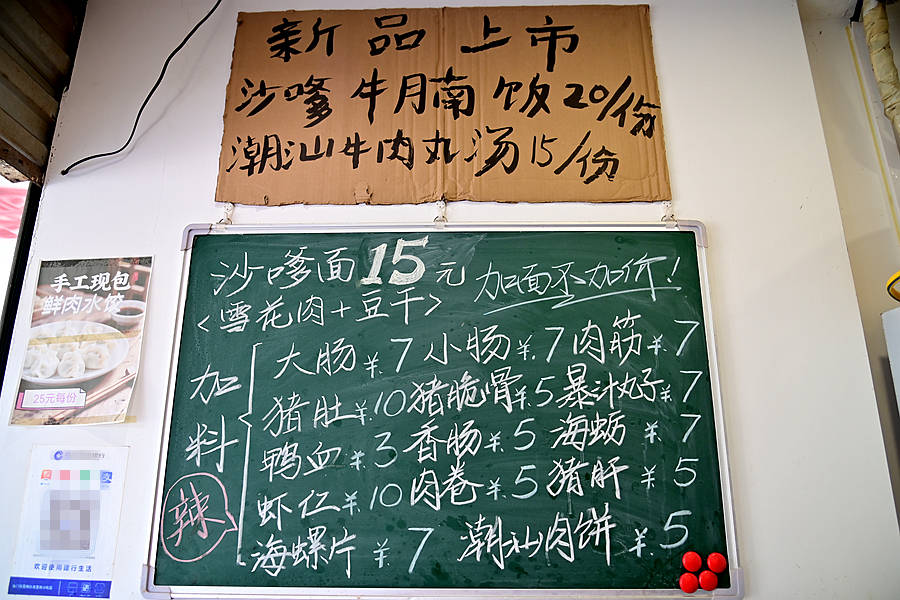 新品上市
沙嗲牛月南饭20/份
潮汕牛肉丸汤15/份
沙嗲面15元 加面不加价!
<雪花肉+豆干>
加料
大肠¥.7 小肠¥.7 肉筋¥.7
猪肚¥.10 猪脆骨¥.5 暴汁丸子¥.7
鸭血¥.3 香肠¥.5 海蛎¥.7
虾仁¥.10 肉卷¥.5 猪肝¥.5
海螺片¥.7 潮汕肉饼¥.5
辣
手工现包
鲜肉水饺
25元每份
欢迎使用建行生活